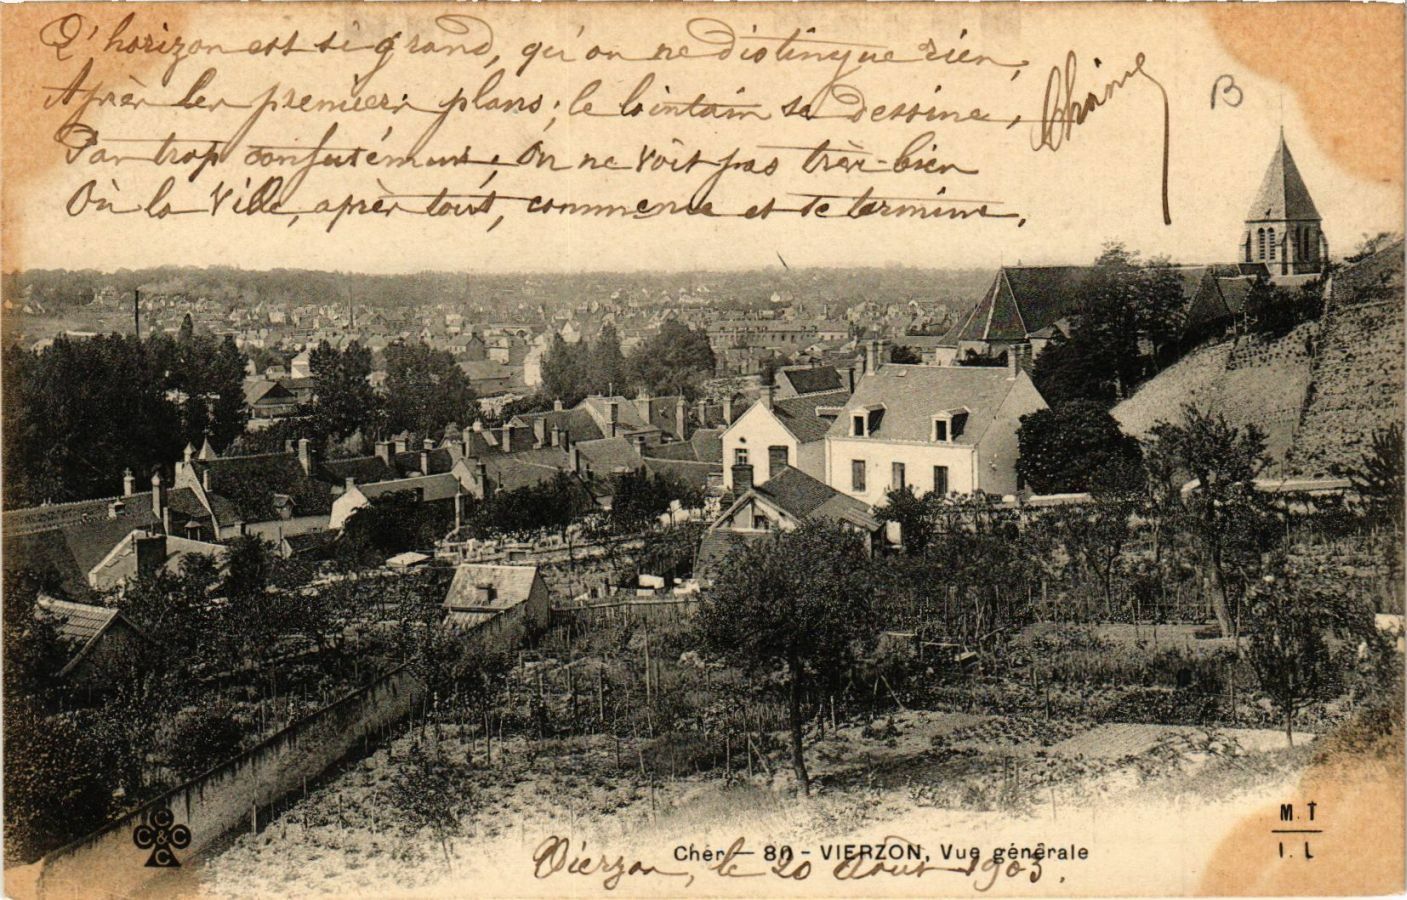 L'horizon est si grand, qu'on ne distingue rien,
Après les premiers plans; le lointain se dessine,
Par trop confusément, On ne voit pas très-bien
Où la Ville, après tout, commence et se termine.
B
Cher — 80 - VIERZON, Vue générale
Vierzon, le 20 Août 1903.
C C & C C
M. T
I. L